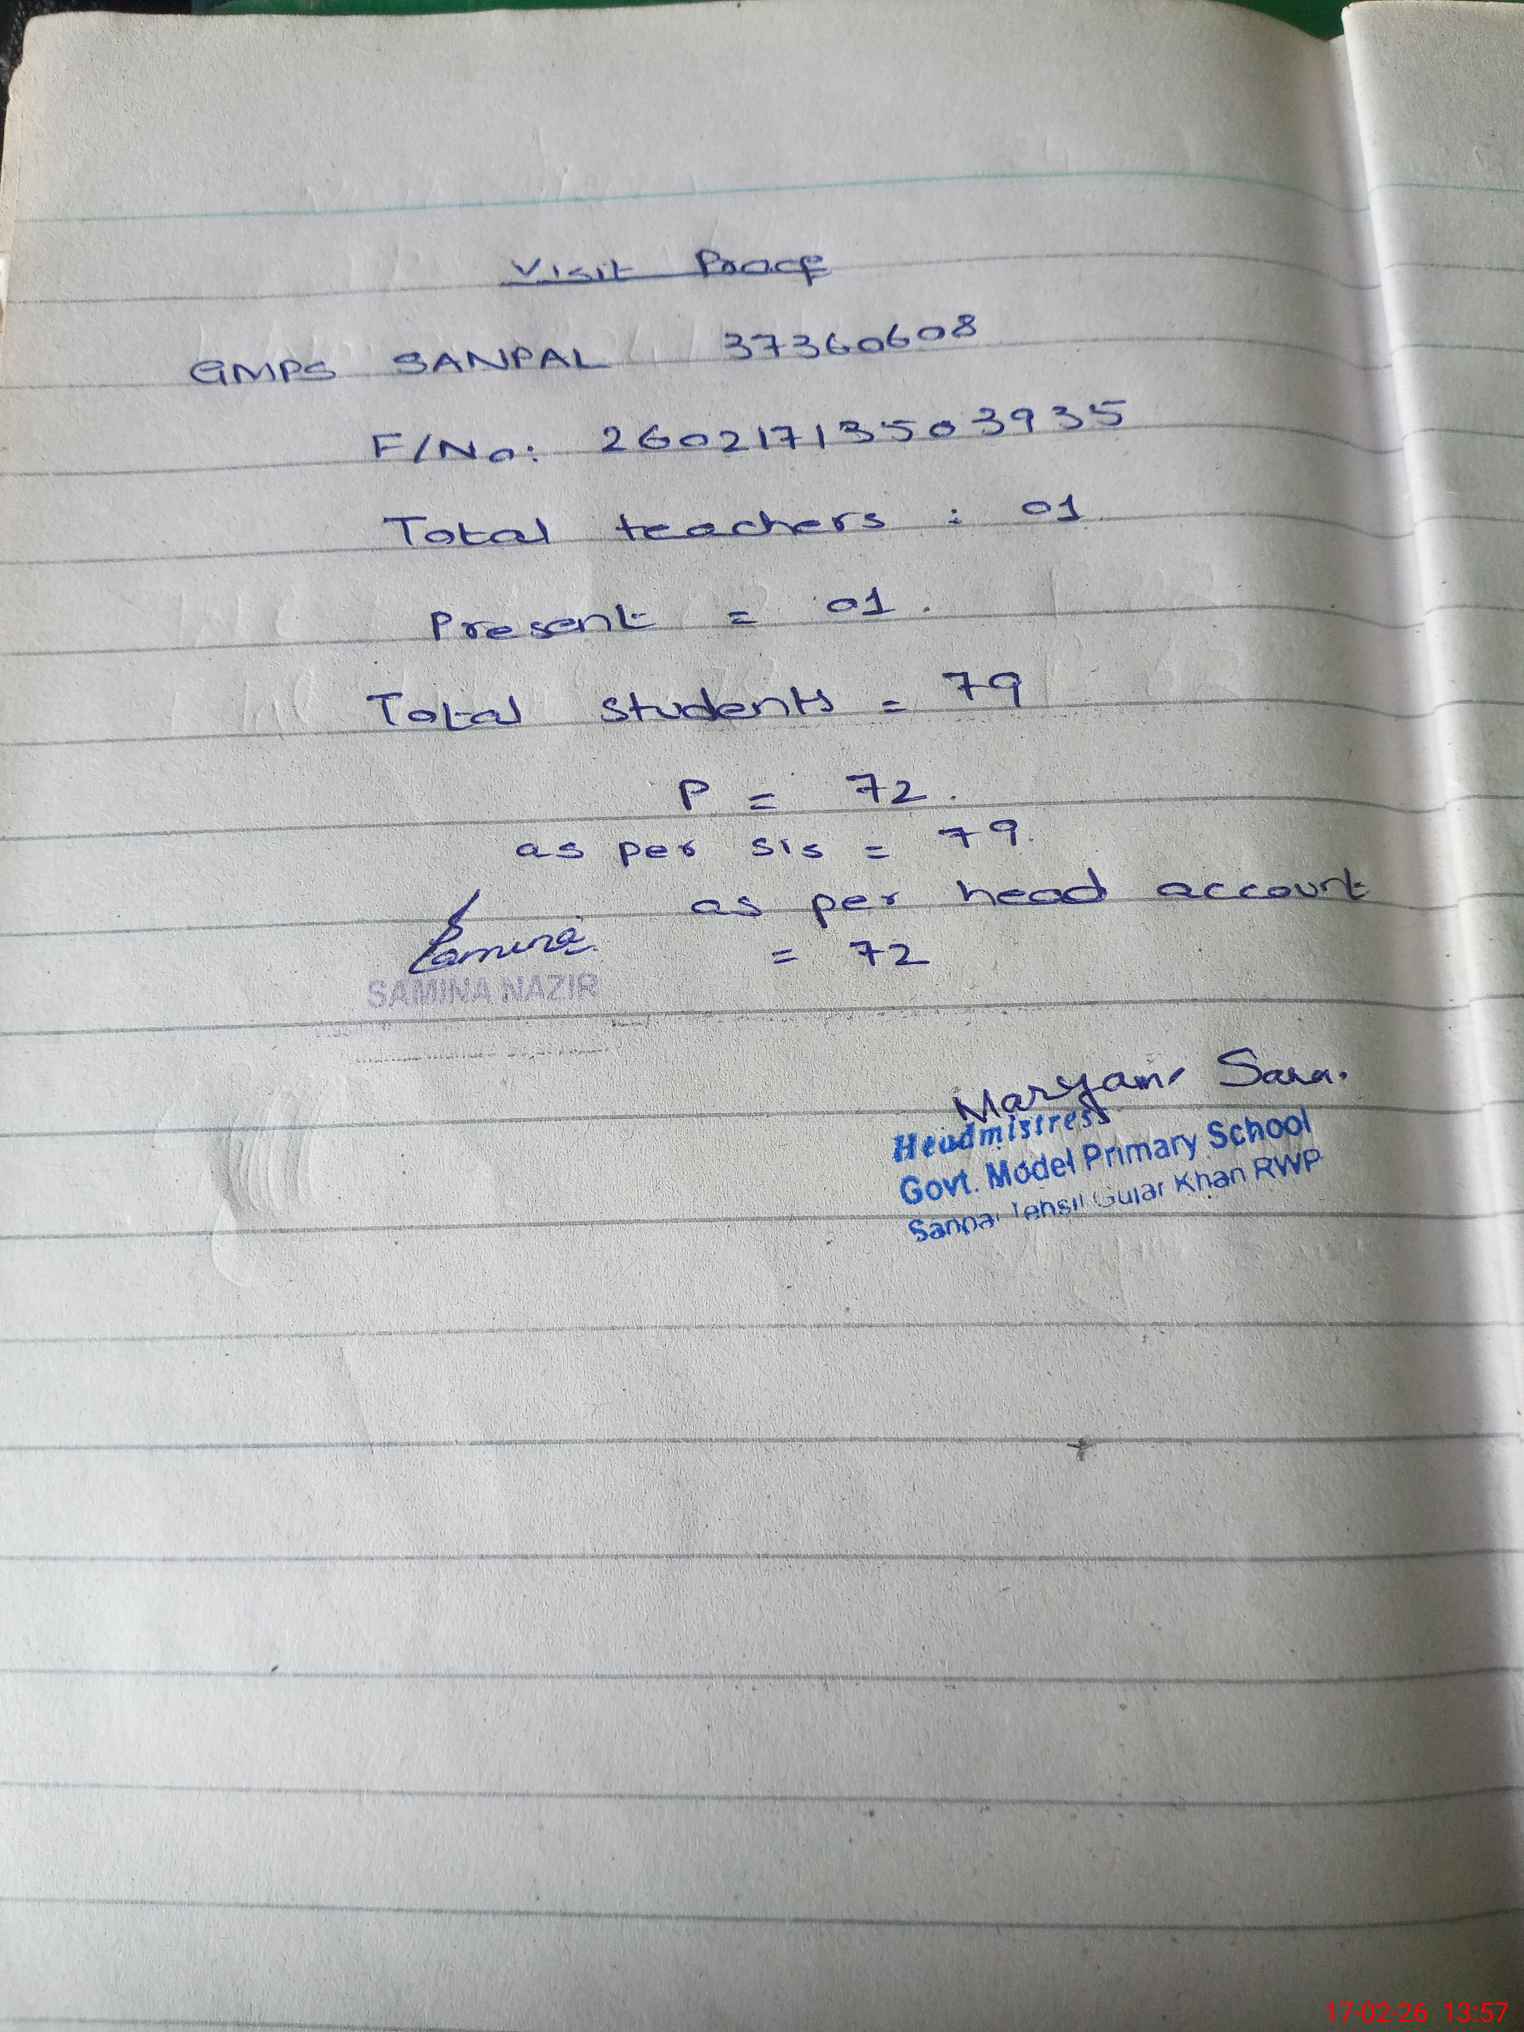 Visit Proof
GMPS SANPAL 37360608
F/No: 26021713503935
Total teachers : 01
Present = 01.
Total students = 79
P = 72.
as per sis = 79.
as per head account
= 72
Samina
SAMINA NAZIR
Maryam Sara.
Headmistress
Govt. Model Primary School
Sanpal Tehsil Gujar Khan RWP
17-02-26 13:57